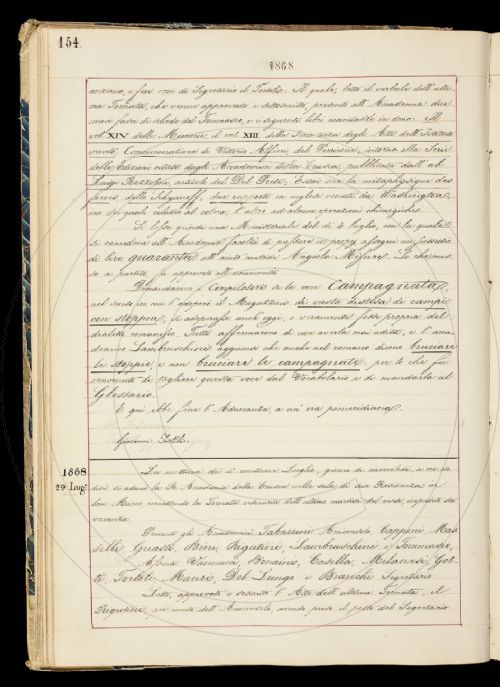 154.
1868
anziano, e fece veci di Segretario il Tortoli. Il quale, letto il verbale dell'ultima
Tornata, che venne approvato e sottoscritto, presentò all'Accademia due
nuovi fasci di schede del Tommaseo, e i seguenti libri mandatile in dono: Il
vol. XIV delle Memorie, il vol. XIII della Serie terza degli Atti dell'Istituto
veneto, Commemorazione di Vittorio Alfieri, del intorno alla Serie
delle Edizioni citate dagli Accademici della Crusca, pubblicata dall'ab.
Luigi Razzolini, articolo del Del Prete, Essai sur la métaphysique des
forces, dello Schyanoff, due rapporti in inglese venuti da Washington,
uno dei quali relativo al colera, l'altro ad alcune operazioni chirurgiche.
Si lesse quindi una Ministeriale del dì 4 luglio, con la quale
si concedeva all'Accademia facoltà di passare in propri assegni un sussidio
di lire quaranta all'avventizio Angiolo. Lo che, messo
a partito, fu approvato all'unanimità.
Domandarono i Compilatori se la voce Campagnata,
nel senso in cui l'adoperò il Magalotti di vasta distesa di campi
con stoppia, si adoperasse anch'oggi, o veramente fosse propria del
dialetto romanesco. Tutti affermarono di non averla mai udita, e l'Accademico
Lambruschini aggiunse che anche nel romano dicono bruciare
le stoppie, e non bruciare le campagnate, per lo che fu
convenuto di togliere questa voce dal Vocabolario e di mandarla al
Glossario.
E qui ebbe fine l'Adunanza, a un'ora pomeridiana.
Giovanni Tortoli.
1868
29 Lug.
La mattina dei 29 Luglio, giorno di mercoledì, a ore undici
si adunò la R. Accademia della Crusca nella sala di sua Residenza in
San Marco, la Tornata ordinaria dell'ultimo martedì del mese, impedita da
vacanza.
Presenti gli Accademici Tabarrini Arciconsolo, Capponi, Masselli,
Guasti, Bini, Rigutini, Lambruschini e Tommaseo,
Vannucci, Bonaini, Casella, Milanesi, Gotti,
Tortoli, Mauri, Del Lungo e Bianchi Segretario.
Letto, approvato e l'Atto dell'ultima Tornata, il
Rigutini, per invito dell'Arciconsolo, avendo preso il posto del Segretario